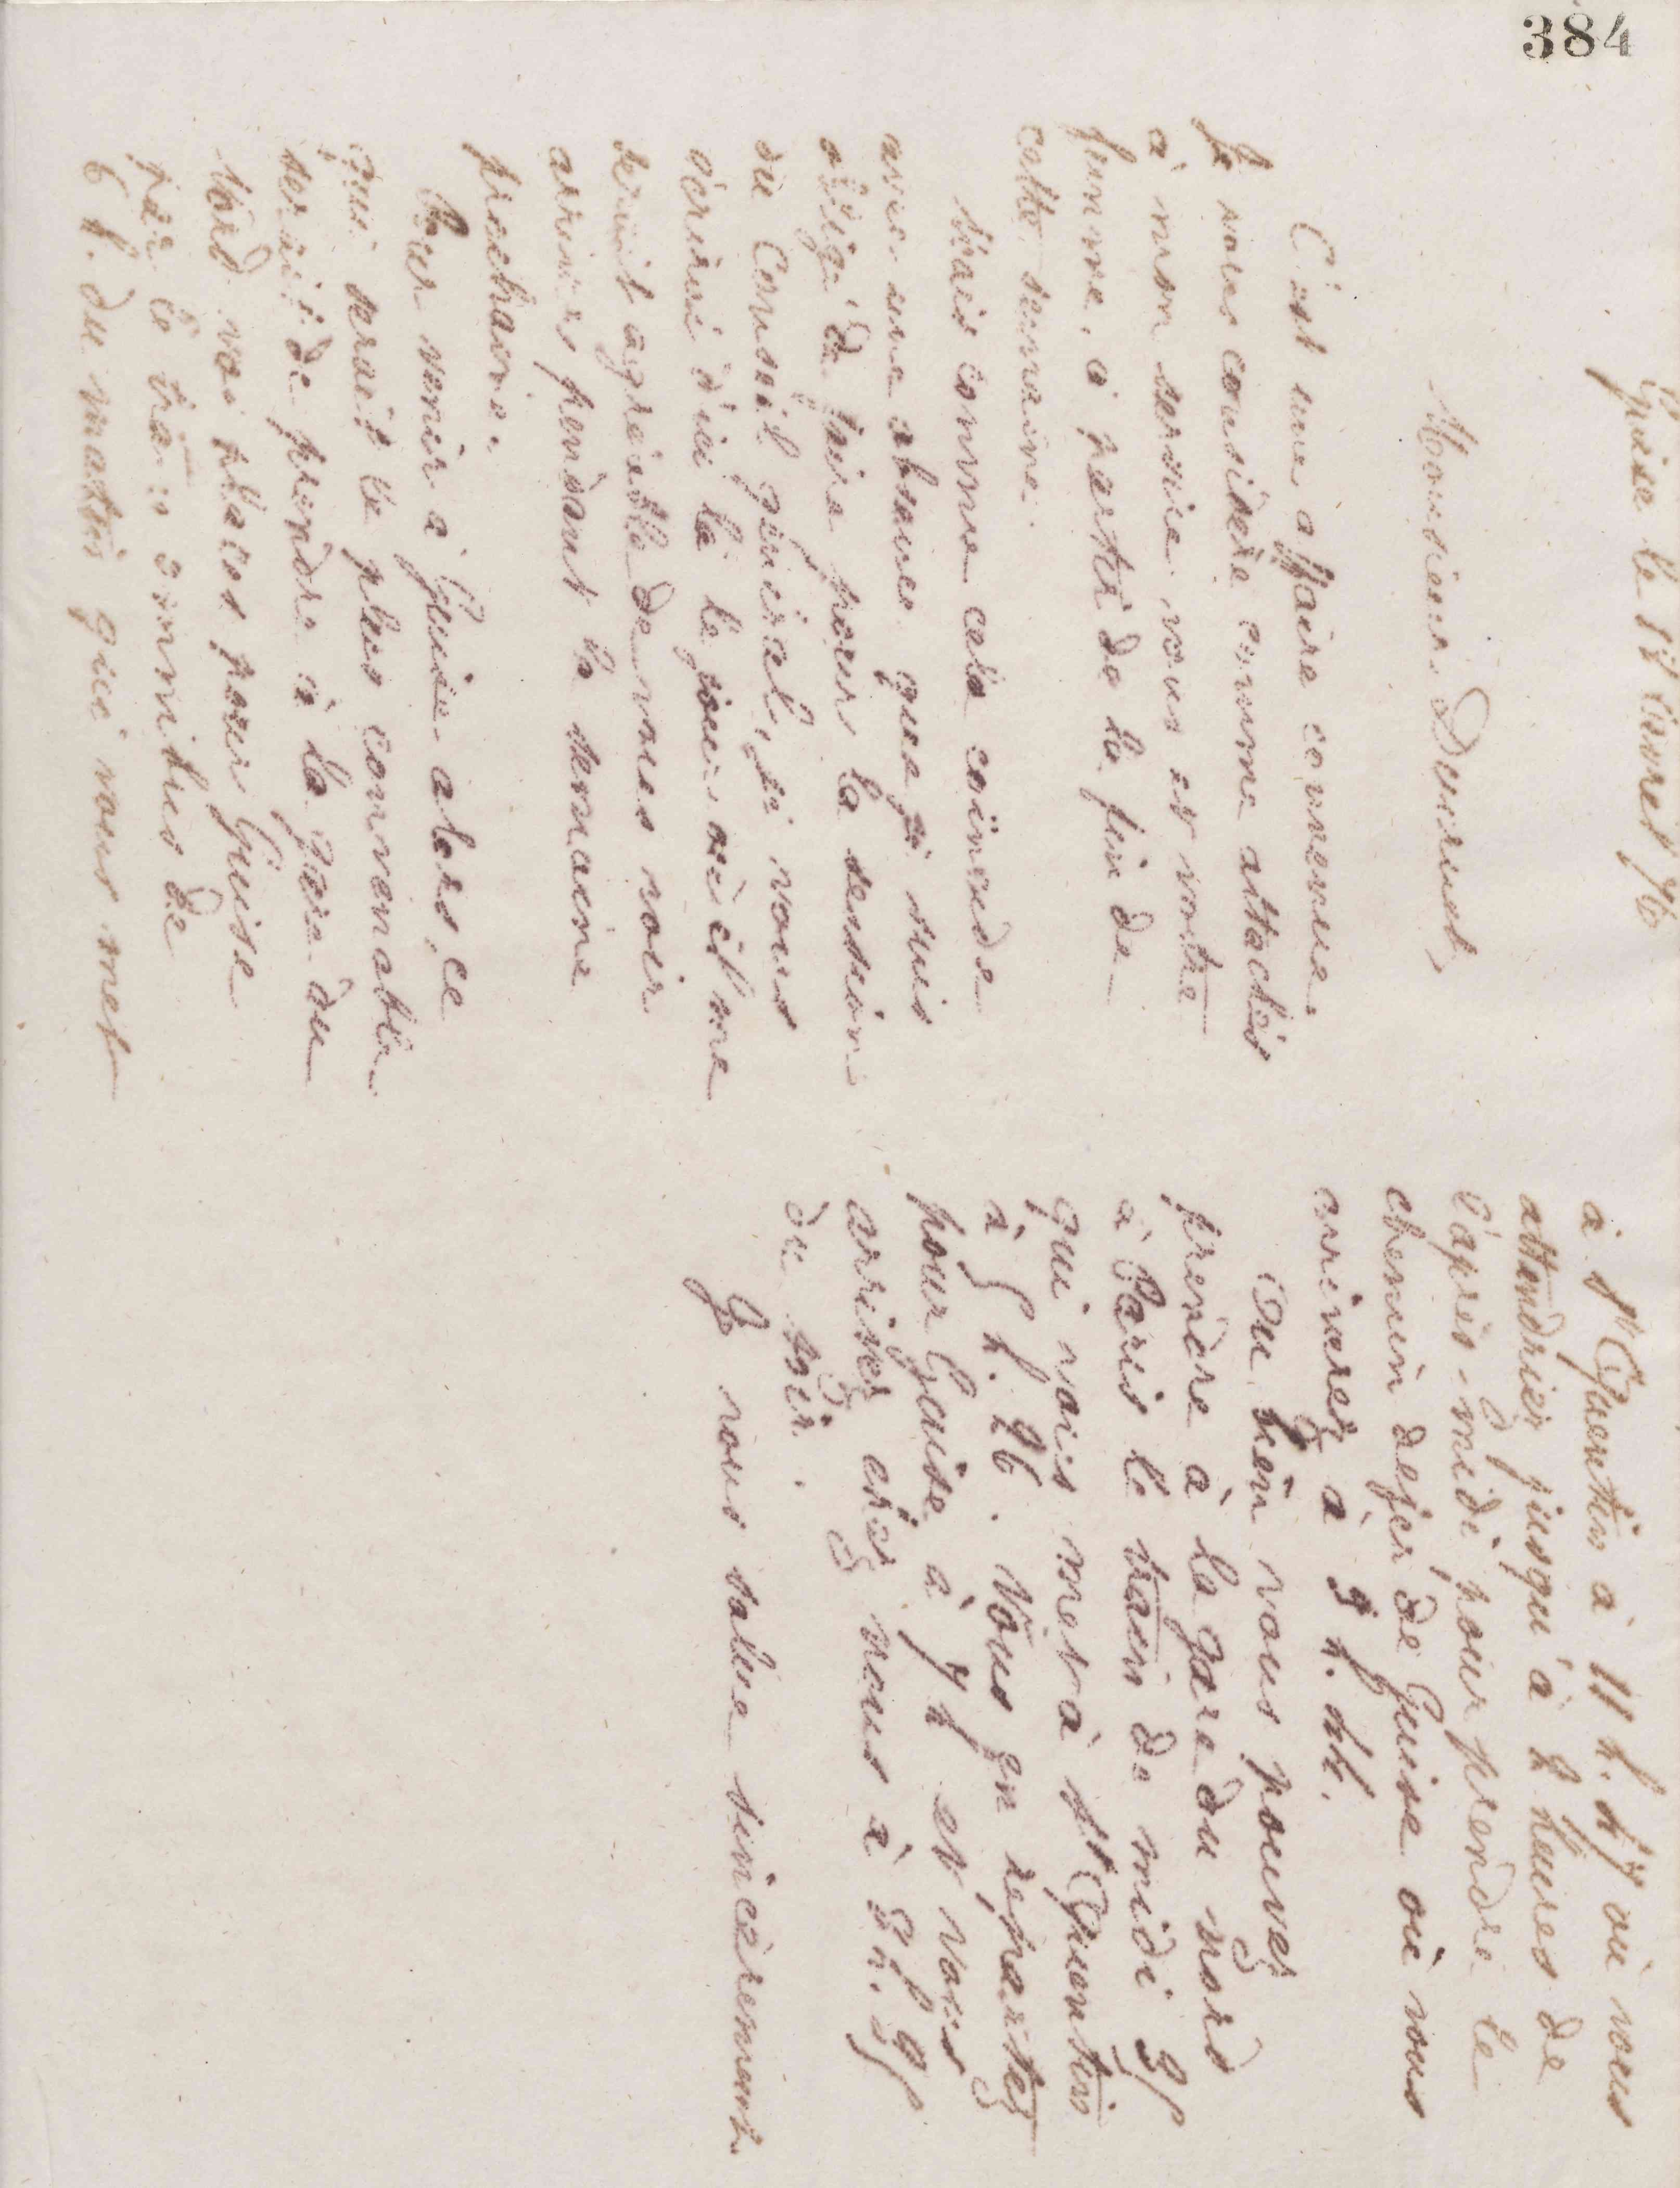 384
Guise le 17 Avril 76
Monsieur Deynaud,
C'est une affaire convenue.
Je vous considère comme attachés
à mon service, vous et votre
femme, à partir de la fin de
cette semaine.
Mais comme cela coïncide
avec une absence que je suis
obligé de faire pour la session
du Conseil général, je vous
écrirai d'ici là le jour où il me
serait agréable de vous voir
arriver pendant la semaine
prochaine.
Pour venir à Guise alors, ce
qui serait le plus convenable
serait de prendre à la gare du
Nord vos places pour Guise
par le train omnibus de
6 h. du matin qui vous met
à St Quentin à 11 h. 47 où vous
attendriez jusqu'à 2 heures de
l'après-midi pour prendre le
chemin de fer de Guise où vous
arriverez à 3 h. 44.
Ou bien vous pouvez
prendre à la gare du nord
à Paris le train de midi 35
qui vous met à St Quentin
à 5 h. 26. Vous en repartez
pour Guise à 7 h et vous
arrivez chez nous à 8 h. 35
du soir.
Je vous salue sincèrement.